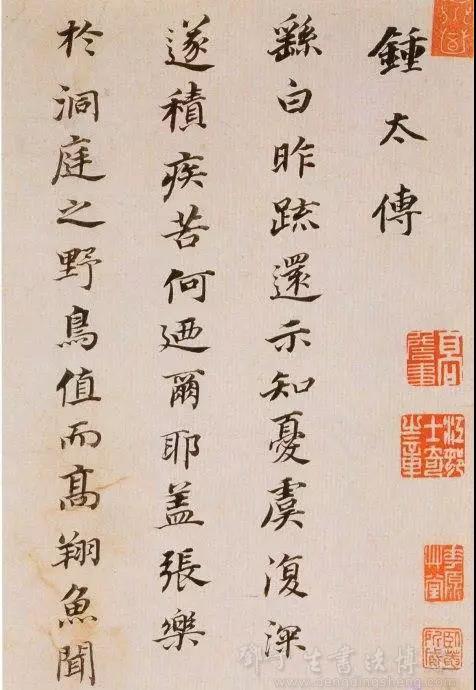 鍾太傅
繇白昨疏還示知憂虞復深
遂積疾苦何迺爾耶盖張樂
於洞庭之野鳥值而高翔魚聞